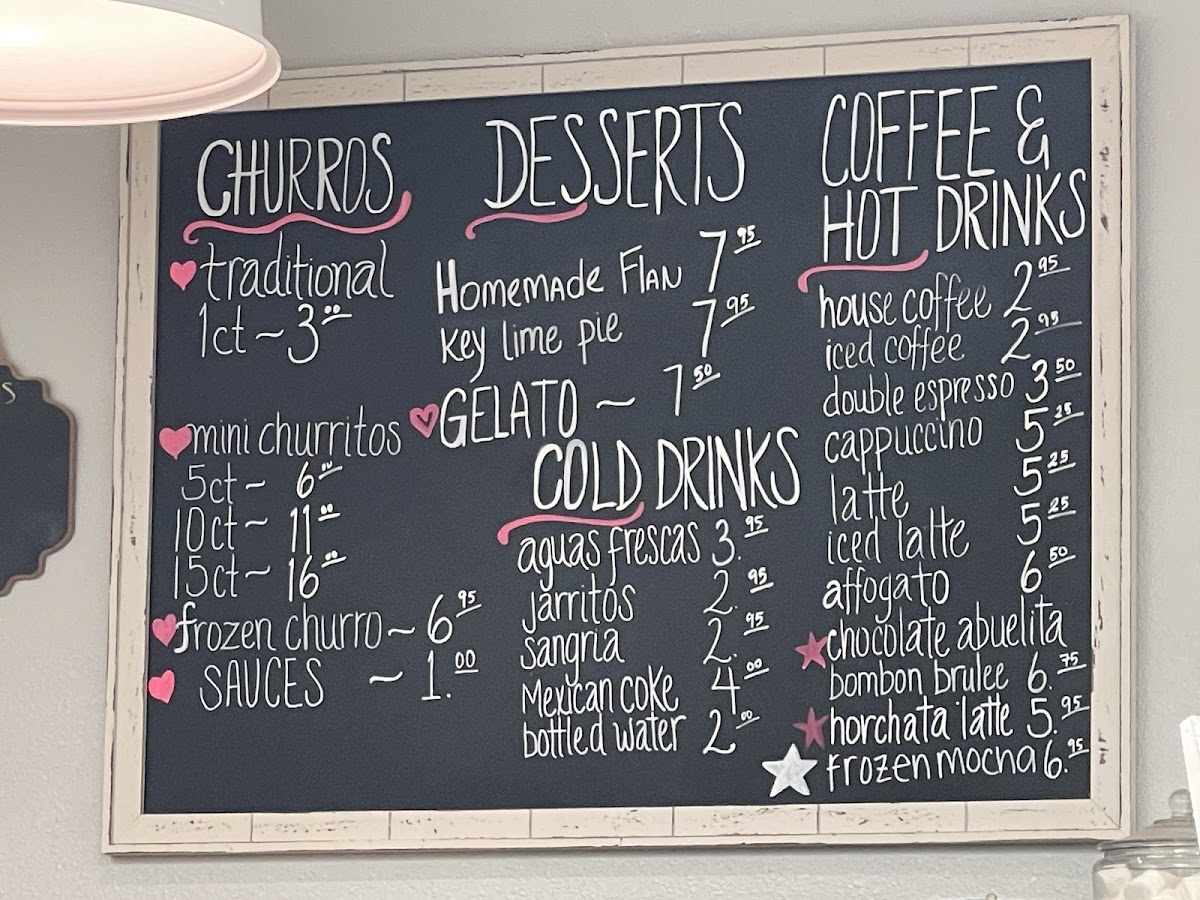 CHURROS
traditional
1ct ~ 3.00
mini churritos
5ct ~ 6.00
10ct ~ 11.00
15ct ~ 16.00
frozen churro ~ 6.95
SAUCES ~ 1.00
DESSERTS
Homemade Flan 7.95
key lime pie 7.95
GELATO ~ 7.50
COLD DRINKS
aguas frescas 3.95
jarritos 2.95
sangria 2.95
Mexican coke 4.00
bottled water 2.00
COFFEE &
HOT DRINKS
house coffee 2.95
iced coffee 2.95
double espresso 3.50
cappuccino 5.25
latte 5.25
iced latte 5.25
affogato 6.50
chocolate abuelita
bombon brulee 6.75
horchata latte 5.95
frozen mocha 6.95